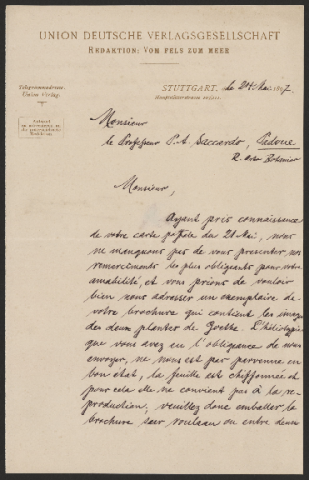 UNION DEUTSCHE VERLAGSGESELLSCHAFT
REDAKTION: VOM FELS ZUM MEER
Telegrammadresse:
Union Verlag.
STUTTGART, le 24 Mai 1897.
Monsieur
le Professeur P. A. Saccardo, Padoue
R. Orto Botanico
Monsieur,
Ayant pris connaissance
de votre carte postale du 21 Mai, nous
ne manquons pas de vous presenter nos
remerciments les plus obligeants pour votre
amabilité, et vous prions de vouloir
bien nous adresser un exemplaire de
votre brochure qui contient les images
des deux plantes de Goethe. L'héliotypie
que vous avez eu l'obligeance de nous
envoyer, ne nous est pas parvenue en
bon état, la feuille est chiffonnée et
pour cela elle ne convient pas à la re-
production; veuillez donc emballer la
brochure sur rouleau ou entre deux